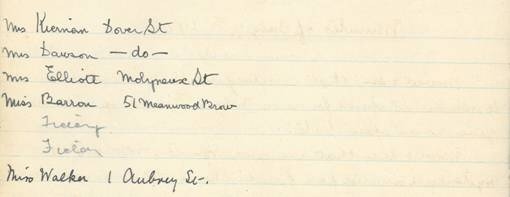 Mrs Kiernan Dover St
Mrs Dawson — do —
Mrs Elliott Molyneux St
Miss Barron 51 Meanwood Brow
Friday
Friday
Miss Walker 1 Aubrey St.